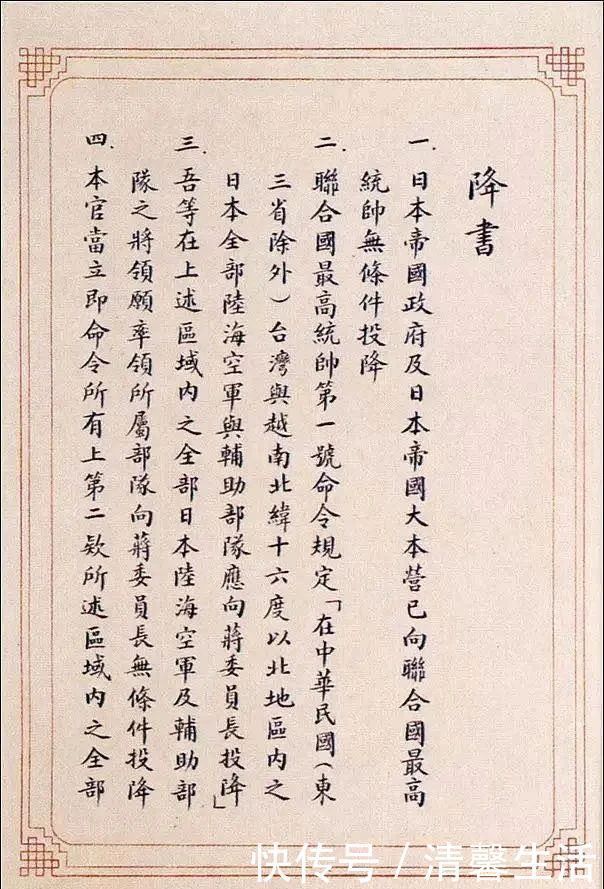 降書
一.日本帝國政府及日本帝國大本營已向聯合國最高
統帥無條件投降
二.聯合國最高統帥第一號命令規定「在中華民國(東
三省除外)台灣與越南北緯十六度以北地區內之
日本全部陸海空軍與輔助部隊應向蔣委員長投降」
三.吾等在上述區域內之全部日本陸海空軍及輔助部
隊之將領願率領所屬部隊向蔣委員長無條件投降
四.本官當立即命令所有上第二欵所述區域內之全部
快传号/清馨生活